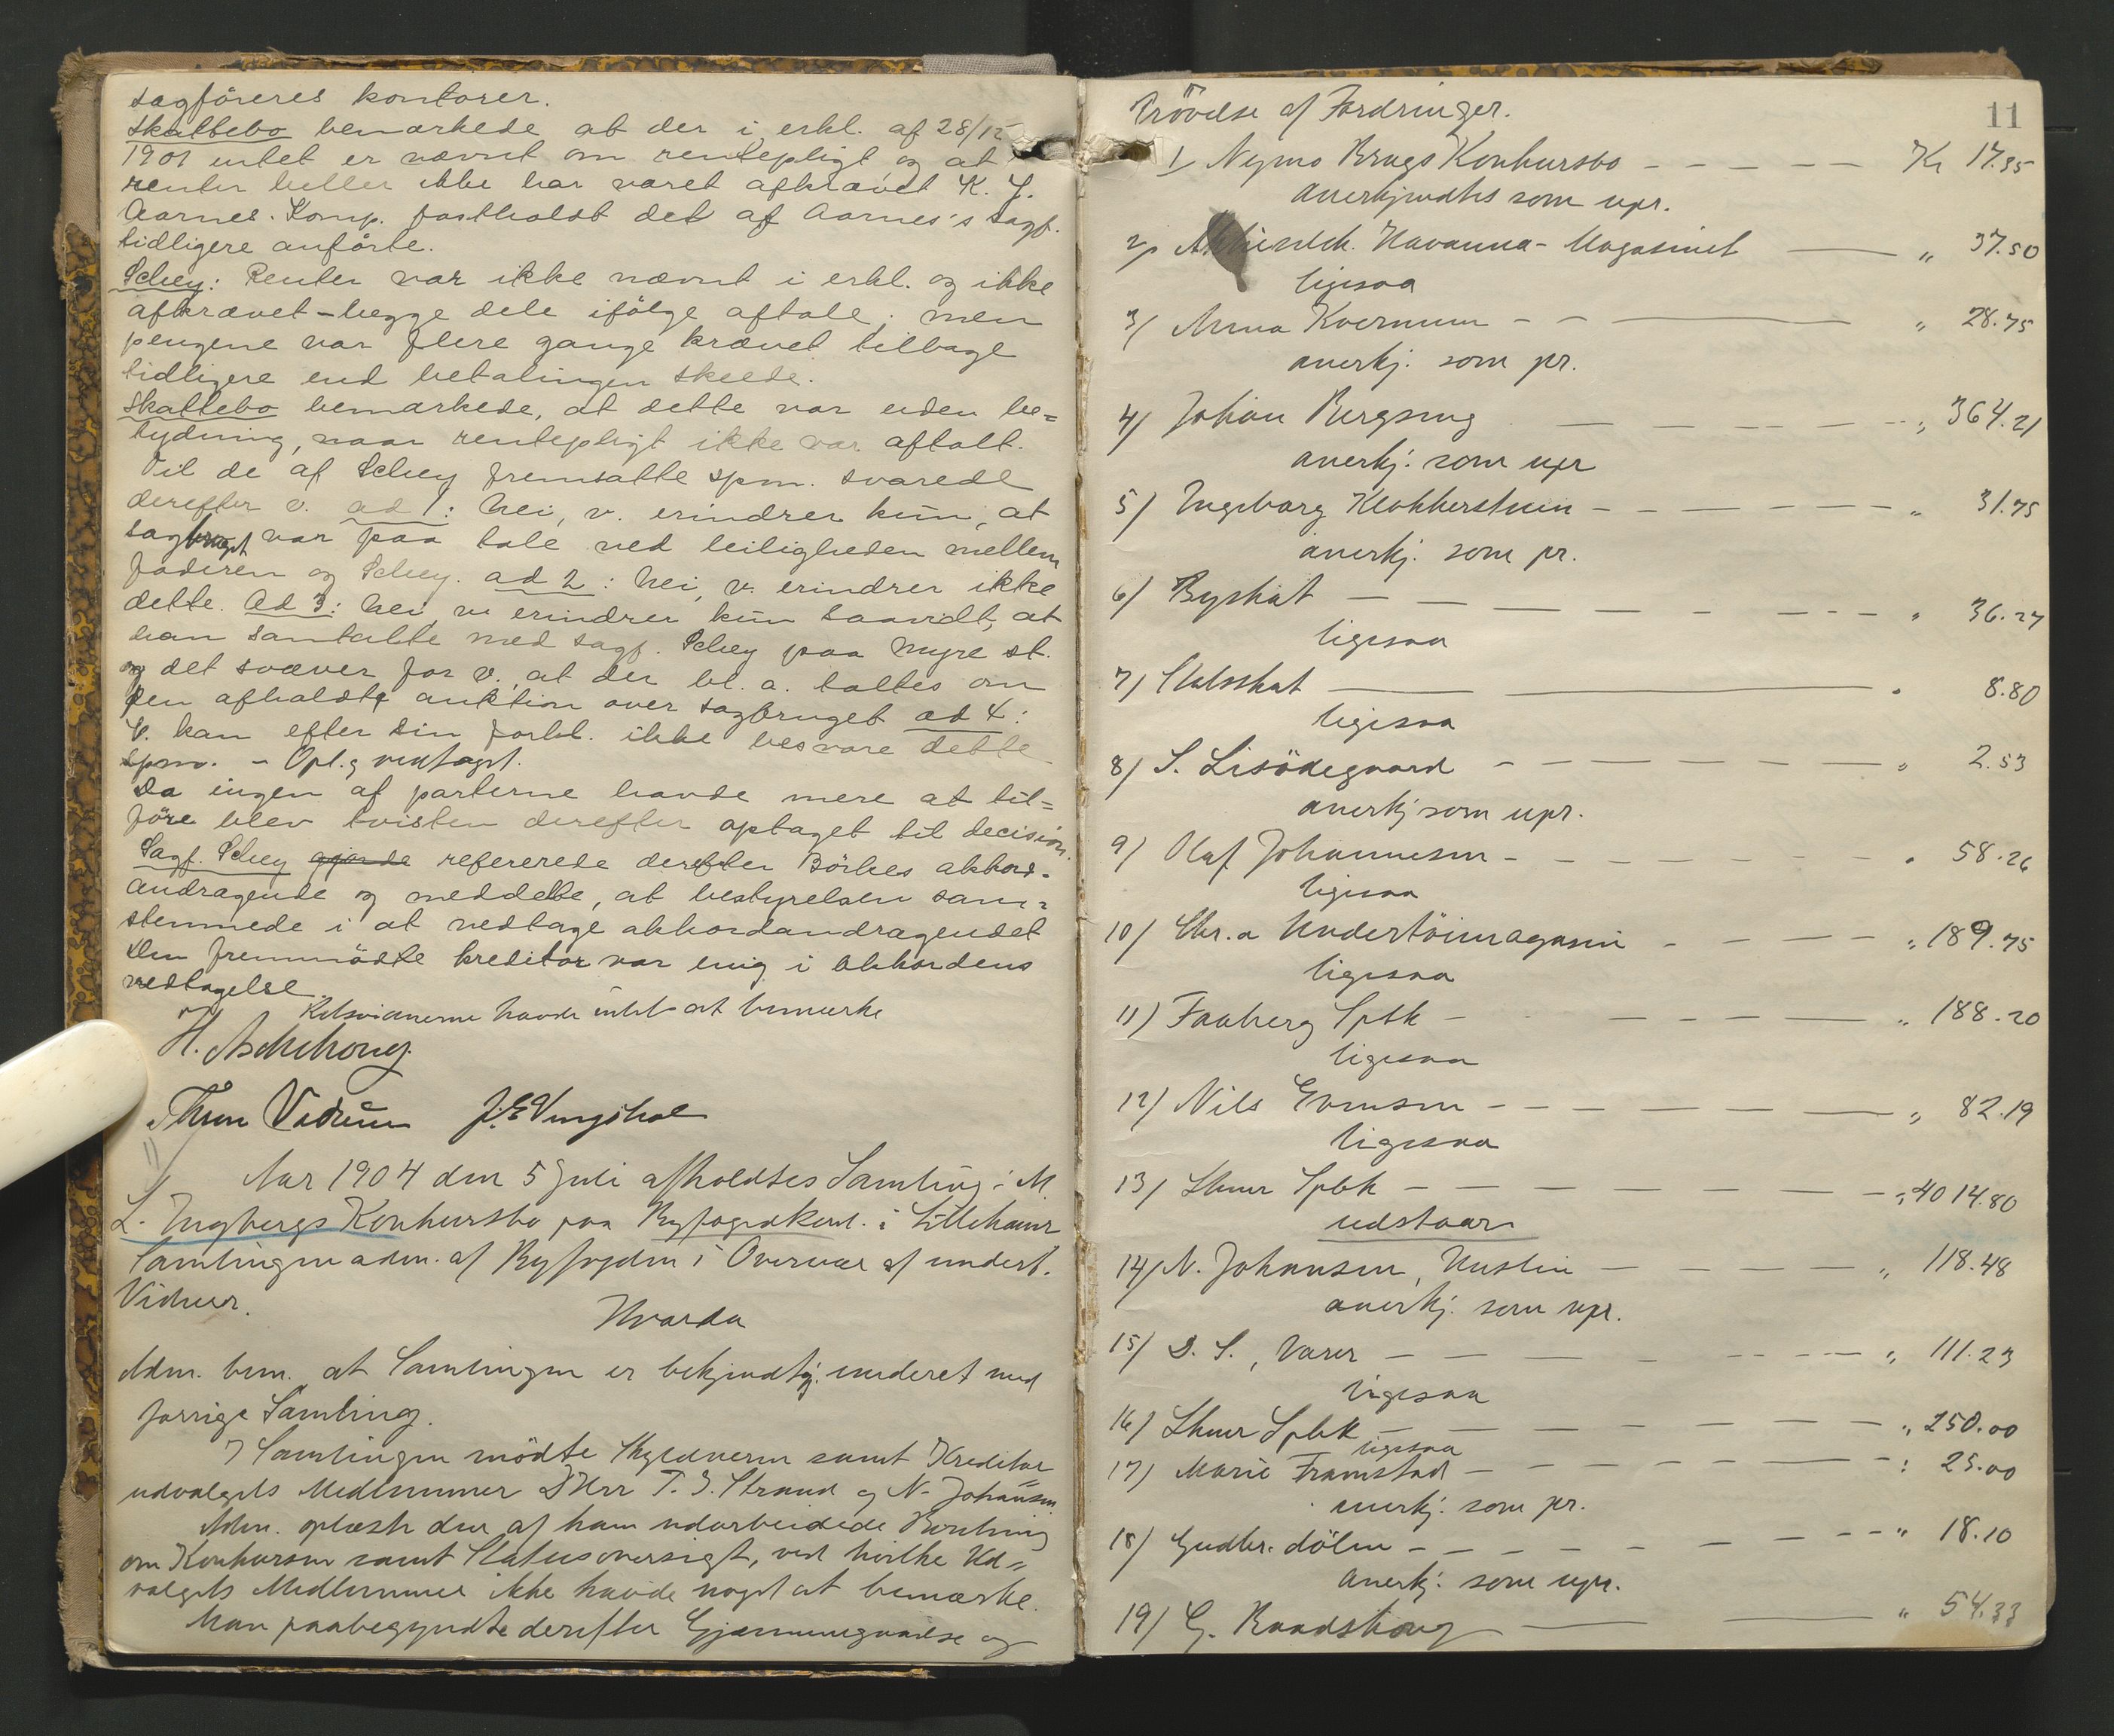 sagføreres kontorer.
Skattebo bemærkede at der i erkl. af 28/12
1901 intet er nævnt om rentepligt og at
renter heller ikke har været afkrævet K. J.
Aarnes. Komp. fastholdt det af Aarnes's sagf.
tidligere anførte.
Schey: Renter var ikke nævnt i erkl. og ikke
afkrævet – begge dele ifölge aftale; men
pengene var flere gange krævet tilbage
tidligere end betalingen skede.
Skattebo bemærkede, at dette var uden be=
tydning, naar rentepligt ikke var aftalt.
Til de af Schey fremsatte spm. svarede
derefter v. ad 1: Nei, v. erindrer kun, at
sagbruget var paa tale ved leiligheden mellem
faderen og Schey. ad 2: Nei, v. erindrer ikke
dette. Ad 3: Nei, v. erindrer kun saavidt, at
han samtalte med sagf. Schey paa Myre st.
og det svæver for v., at der bl. a. taltes om
den afholdte auktion over sagbruget ad 4:
V. kan efter sin forkl. ikke besvare dette
spm. – Opl. og vedtaget.
Da ingen af parterne havde mere at til=
føre blev tvisten derefter optaget til decision.
Sagf. Schey gjorde refererede derefter Börkes akkord-
andragende og meddelte, at bestyrelsen sam=
stemmede i at vedtage akkordandragendet
Den fremmødte kreditor var enig i akkordens
vedtagelse.
Retsvidnerne havde intet at bemærke
H. Aschehoug.
Thron Vedum J. E. Vingshal
Aar 1904 den 5 Juli afholdtes Samling i M.
L. Engbergs Konkursbo paa Byfogedkont. i Lilleham̄r
Samlingen adm. af Byfogden i Overvær af undert.
Vidner.
Hvorda
Adm. bem. at Samlingen er bekjendtgj. inderet med
forrige Samling.
I Samlingen mödte Skyldneren samt Kreditor=
udvalgets Medlemmer DHrr T. S. Strand og N. Johansen.
Adm. oplæste den af ham udarbeidede Beretning
om Konkursen samt Statusoversigt, ved hvilke Ud=
valgets Medlemmer ikke havde noget at bemærke.
Man paabegyndte derefter Gjennemgaaelse og
11
Prövelse af Fordringer.
1/ Nymo Brugs Konkursbo – – – – – Kr 17.35
anerkjendtes som upr.
2/ Aktieselsk. Havanna-Magasinet — „ 37.50
ligesaa
3/ Anna Kvernum – – — „ 28.75
anerkj. som pr.
4/ Johan Bergseng — — — — – „ 364.21
anerkj. som upr
5/ Ingeborg Klokkerstuen – – — — — „ 31.75
anerkj. som pr.
6/ Byskat — — — — — – – – „ 36.27
ligesaa
7/ Statsskat — — „ 8.80
ligesaa
8/ S. Lisödegaard – – — — — — „ 2.53
anerkj som upr.
9/ Olaf Johannesen – – – – – – „ 58.26
ligesaa
10/ Chr.a Undertöimagasin – – — — „ 189.75
ligesaa
11) Faaberg Spbk – – — — — „ 188.20
ligesaa
12/ Nils Evensen – – — — — — „ 82.19
ligesaa
13/ Ham̄r Spbk – — — — — — „ 4014.80
udstaar
14/ N. Johansen, Husleie — — — — „ 118.48
anerkj. som upr.
15/ D. S., Varer – — — – – – – — „ 111.23
ligesaa
16/ Ham̄r Spbk — — — — — „ 250.00
ligesaa
17) Marie Framstad – — — — – – – „ 25.00
anerkj. som pr.
18/ Gudbr. dölen – – – – – — – – „ 18.10
anerkj. som upr.
19/ G. Raadshaug — — „ 54.33